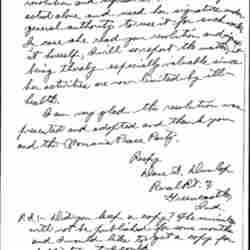 resolution and
acted alone and used her signature and
general authority to use it for such work.
In case she read you resolution and
it herself, I will so report the matter, it
being thereby especially valuable since
her activities are now limited by ill-
health.
I am very glad the resolution was
presented and adopted and thank you
and the Woman's Peace Party.
Resp'y
Dunlap
Rural Rt. 2
Greencastle,
Ind.
P.S.:- Did you keep a copy? The minutes
will not be published for some months
and I would like to get a copy for